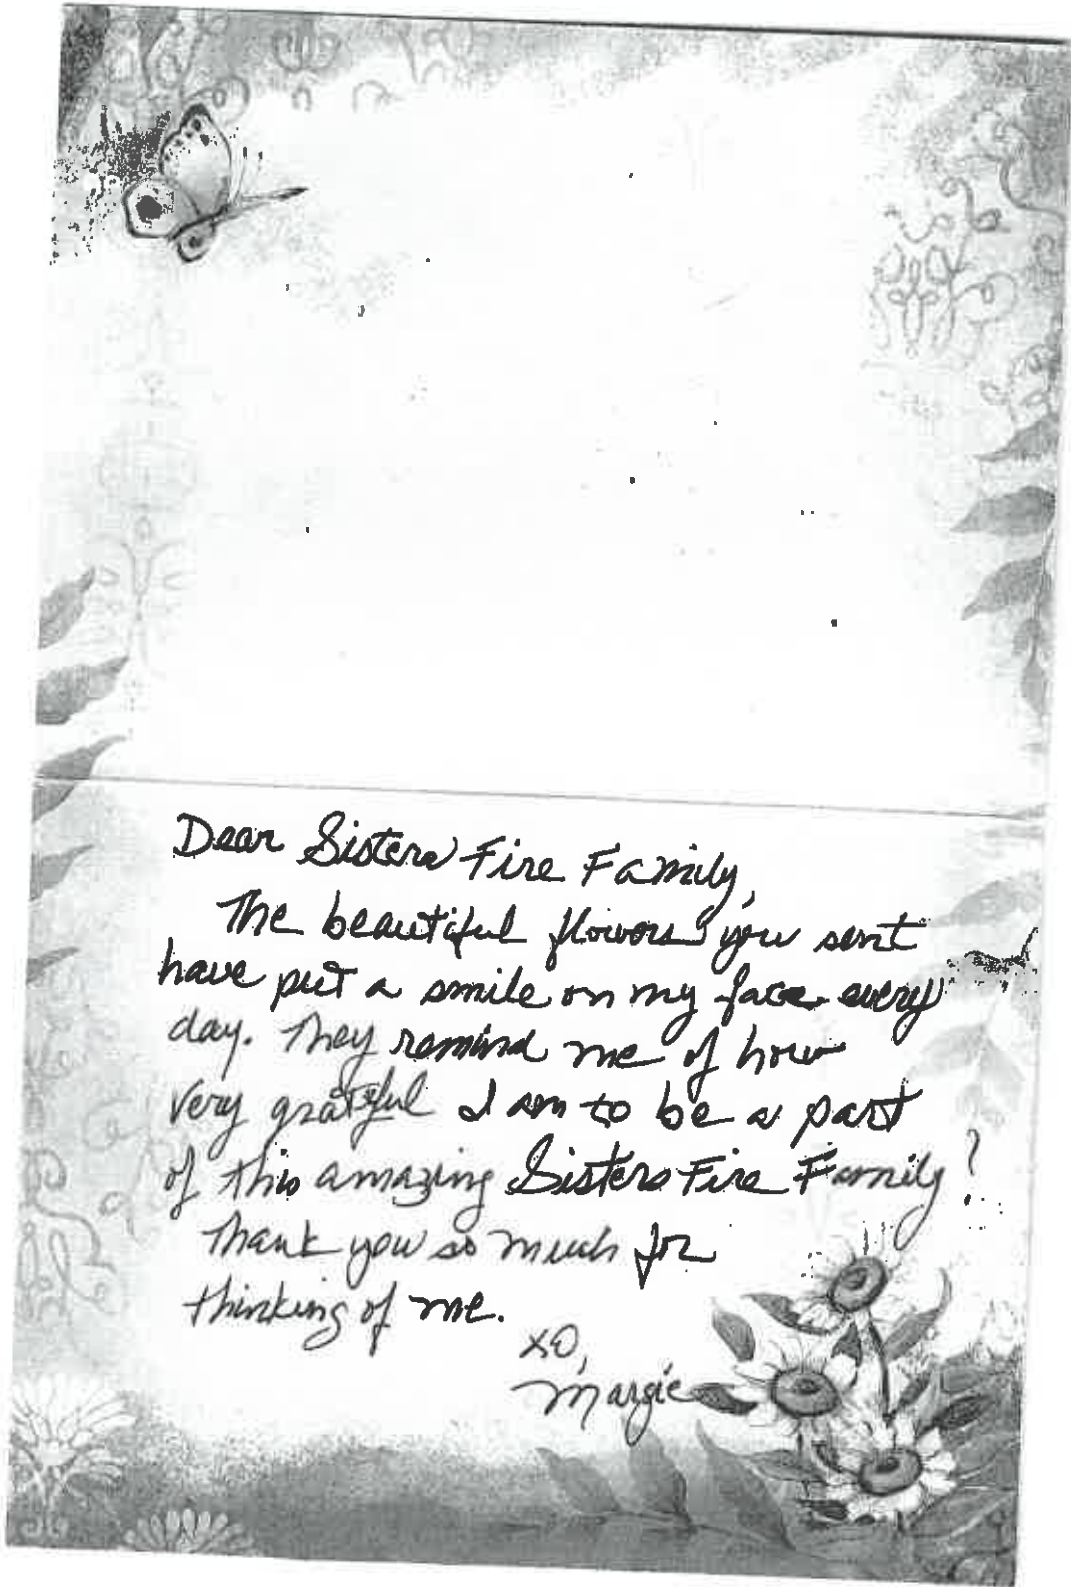 Dear Sisters Fire Family,
The beautiful flowers you sent
have put a smile on my face every
day. They remind me of how
very grateful I am to be a part
of this amazing Sisters Fire Family!
Thank you so much for
thinking of me.
XO,
Margie